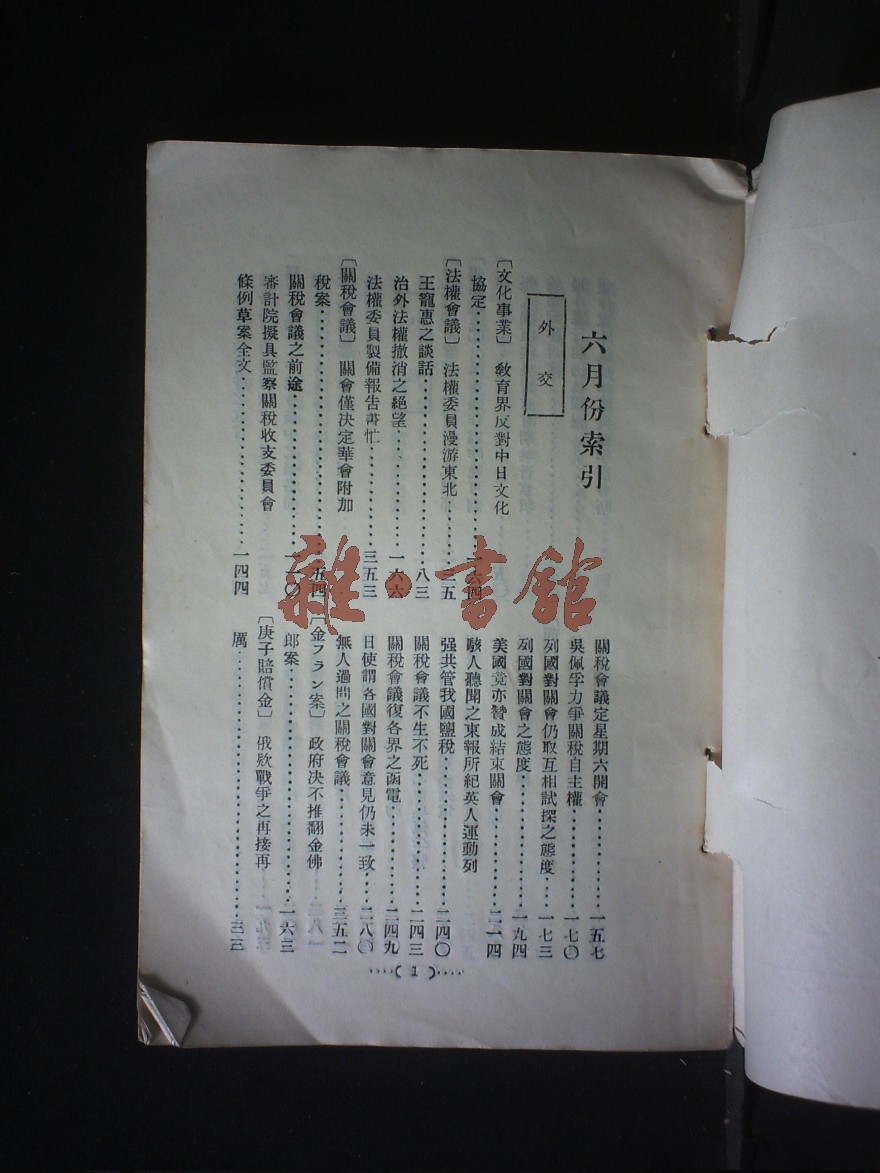 六月份索引
外交
〔文化事業〕 敎育界反對中日文化
協定・・・・・・・・・・一六四
〔法權會議〕 法權委員漫游東北・・・・・二五
王寵惠之談話・・・・・・・・八三
治外法權撤消之絕望・・・・・・・・一六六
法權委員製備報吿書忙・・・・・・・・三五三
〔關稅會議〕 關會僅决定華會附加
稅案・・・・・・・・・・五四
關稅會議之前途・・・・・・・・一一〇
審計院擬具監察關稅收支委員會
條例草案全文・・・・・・・・一四四
關稅會議定星期六開會・・・・・・・・一五七
吳佩孚力爭關稅自主權・・・・・・・・一七〇
列國對關會仍取互相試探之態度・・・・一七三
列國對關會之態度・・・・・・・・一九四
美國竟亦贊成結束關會・・・・・・・・二一四
駭人聽聞之東報所紀英人運動列
强共管我國鹽稅・・・・・・・・二四〇
關稅會議不生不死・・・・・・・・二四三
關稅會議復各界之函電・・・・・・・・二四九
日使謂各國對關會意見仍未一致・・・・二八〇
無人過問之關稅會議・・・・・・・・三五二
〔金フラン案〕 政府决不推翻金佛
郎案・・・・・・・・・・一六三
〔庚子賠償金〕 俄欵戰爭之再接再
厲・・・・・・・・・・
(1)
雜・書館